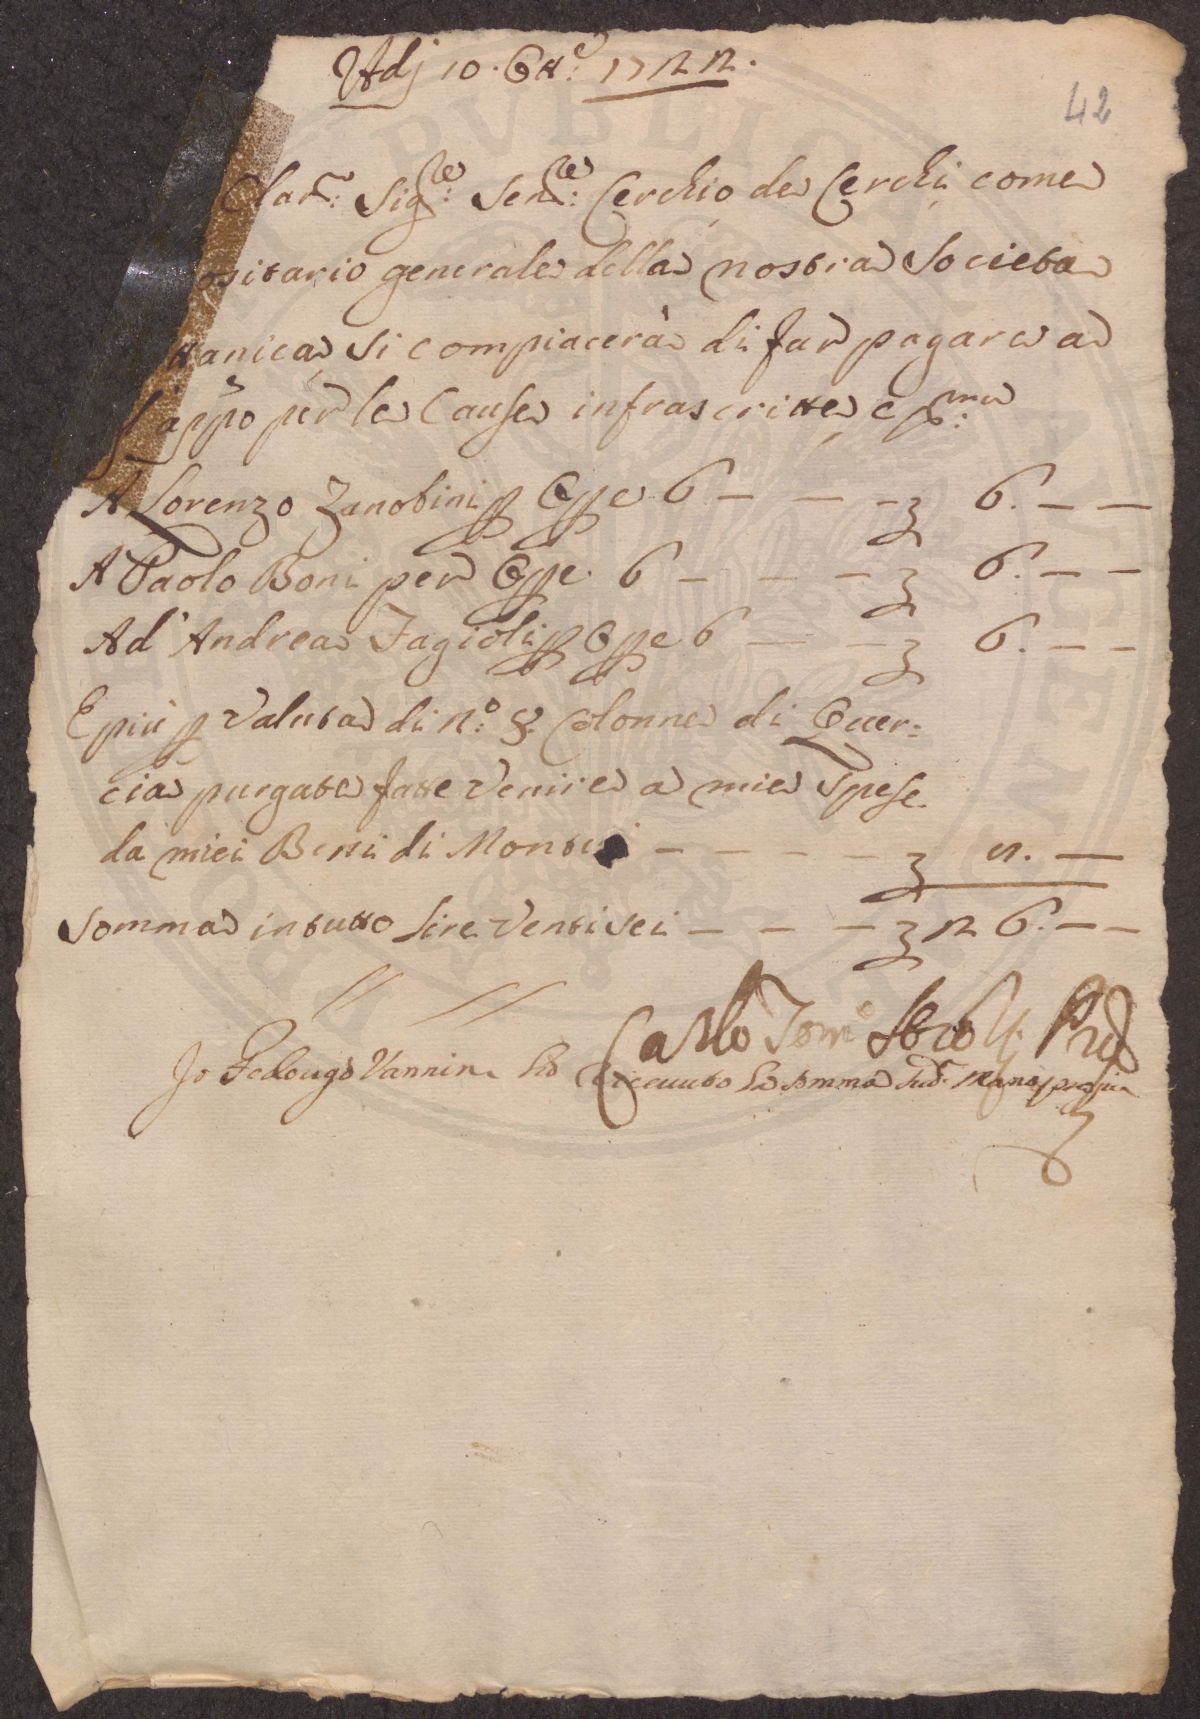 Adj 10. Ott.e: 1722.
42
Clar.mo: Sig.re: Sen.re: Cerchio de Cerchi come
ositario generale della nostra Societa
tanica si compiacerà di far pagare a
appo per le Cause infrascritte e p.ma:
A Lorenzo Zanobini p Ope 6 — — — 6. — —
A Paolo Boni per Ope 6 — — — 6. — —
Ad' Andrea Fagioli p Ope 6 — — 6. — —
E più p valuta di n.o: 8. Colonne di Quer=
cia purgate fatte venire a mie spese
da miei Beni di — — — — — 8. —
Somma in tutto lire ventisei — — — 26. — —
Carlo Tom.o
Io Vannini ho riceuuto la somma Sud.a mano propria